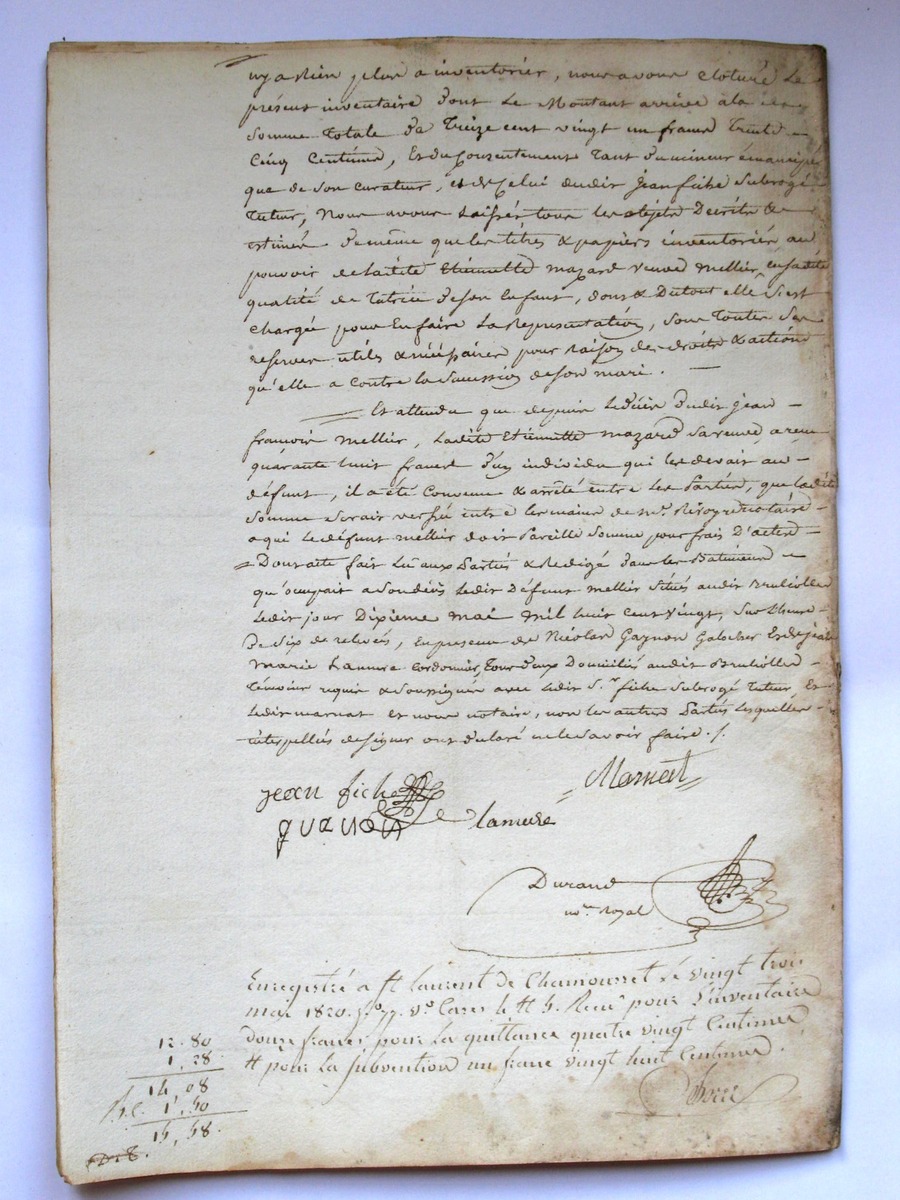 ny a Rien plus a inventorier, nous avons Cloturé Le
présent inventaire dont Le Montant arrive à la
Somme Totale de Treize cent vingt un francs Trente
Cinq Centimes, Et du Consentement Tant du mineur émancipé
que de Son Curateur, et de Celui dudit Jean fiche Subrogé
Tuteur, Nous avons Laissés tous les objets Décrits &
estimés de même que les titres & papiers inventoriés, au
pouvoir de ladite Etiennette mazard veuve mellier, en sadite
qualité de Tutrice de son Enfant, dont & Du tout elle S'est
Chargée pour En faire La Représentation, Sous Toutes Ses
réserves utiles & nécéssaires pour Raison des droits & actions
qu'elle a Contre la Succession de Son mari.
Et attendu que depuis Le décès dudit jean
francois mellier, Ladite Etiennette mazard Sa veuve, a reçu
quarante huit francs d'un individu qui les devait au
défunt, il a été Convenu & arrêté entre Les Parties, que ladite
Somme Serait versée entre les mains de Me. notaire
a qui Le défunt mellier doit Pareille Somme pour frais D'actes
Dont acte fait Lu aux Parties & Redigé dans les Batiments
qu'occupait a Son décès Ledit Défunt mellier Situés audit Brulliolles
Ledit jour Dixième mai Mil huit Cent vingt, Sur L'heure
De Six de relevés, En présence de Nicolas Gagnon Galocher Et de jean
Marie Lamure Cordonnier, Tous deux Domiciliés audit Brulliolles
Témoins requis & Soussignés avec Ledit Sr. fiche Subrogé Tuteur, Et
Ledit marnat et nous notaire, non les autres Parties Lesquelles
intérpellés de signer ont déclaré ne le Savoir faire ./.
jean fiche
Marnat
gagnon
lamure
Durand
nore. royal
Enregistré a St laurent de Chamousset Le vingt trois
mai 1820. fo. 77. vo. Cases 4 & 5. Recu pour L'inventaire
douze francs, pour la quittance quatre vingt Centimes
& pour la Subvention un franc vingt huit Centimes.
12. 80
1, 28
14, 08
1, 50
15, 58.